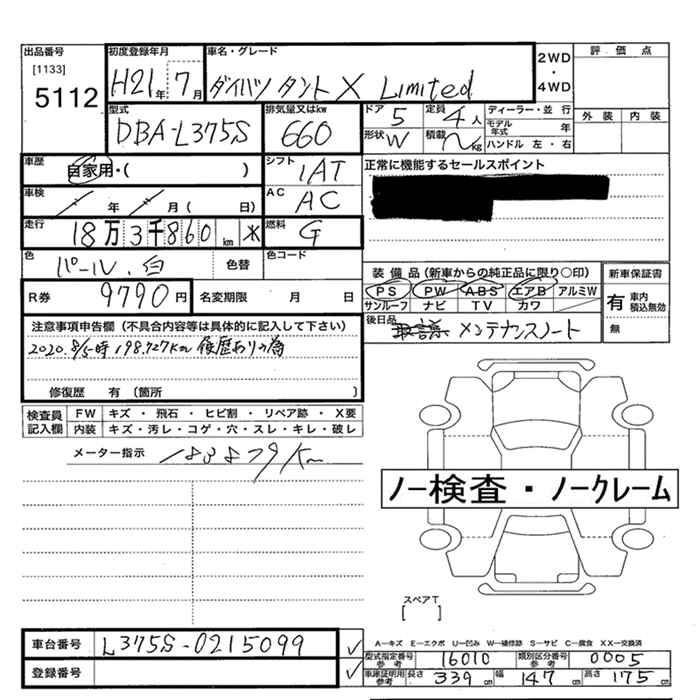 出品番号 初度登録年月 車名・グレード 評価点
[1133] 5112 H21年 7月 ダイハツ タント X Limited 2WD・4WD
外装 内装
型式 排気量又はkw ドア 定員 ディーラー・並行
DBA-L375S 660 5 4人 モデル年式 年
形状 W 積載 kg ハンドル 左・右
車歴 自家用・( ) シフト IAT 正常に機能するセールスポイント
車検 年 月 ( 日) AC AC
走行 18万3千860km 燃料 G
色 パール、白 色替 色コード
装備品(新車からの純正品に限り○印) 新車保証書
PS PW ABS エアB アルミW 有 車内積込無効
サンルーフ ナビ TV カワ 無
R券 9790円 名変期限 月 日
後日品 メンテナンスノート
注意事項申告欄(不具合内容等は具体的に記入して下さい)
2020.8/5時 198.727Km 修歴ありの為
修復歴 有(箇所 )
検査員記入欄 FW キズ・飛石・ヒビ割・リペア跡・X要
内装 キズ・汚レ・コゲ・穴・スレ・キレ・破レ
メーター指示 183879Km
ノー検査・ノークレーム
スペアT
[ ]
A―キズ E―エクボ U―凹み W―補修跡 S―サビ C―腐食 XX―交換済
車台番号 L375S-0215099
型式指定番号 参考 16010 類別区分番号 参考 0005
登録番号
車庫証明用 参考 長さ 339cm 幅 147cm 高さ 175cm